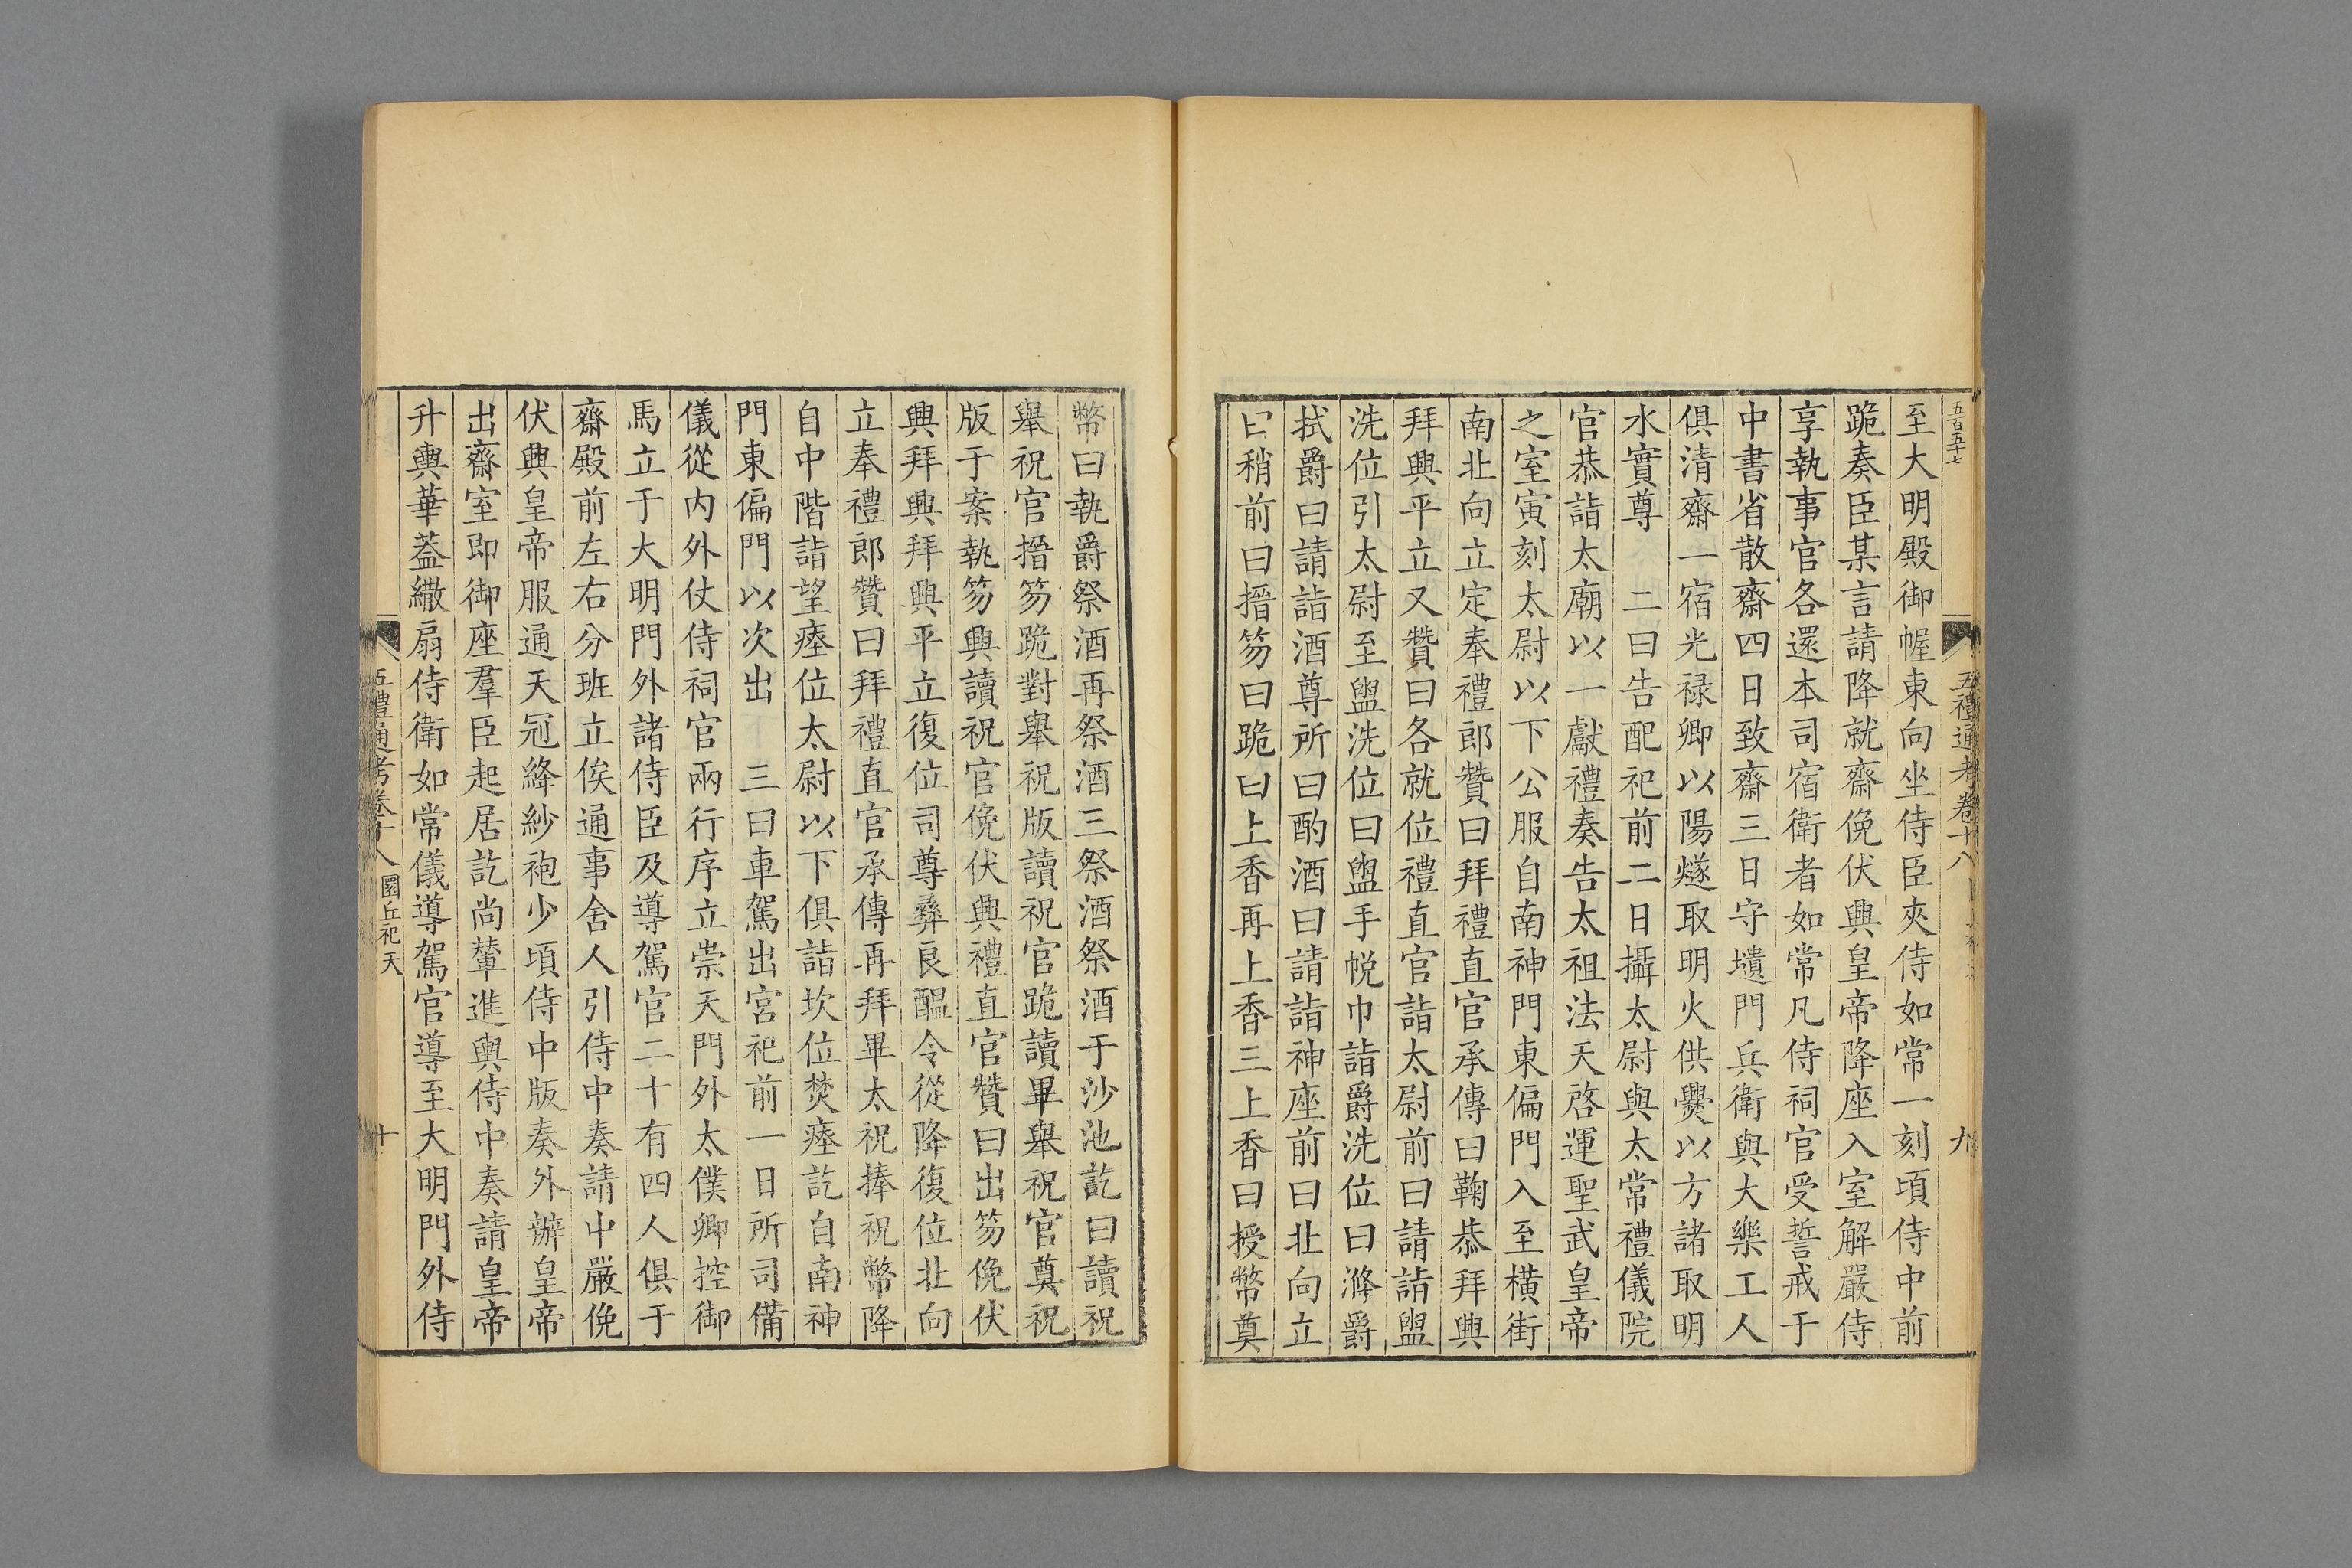 五百五十七
五禮通考卷十八
九
至大明殿御幄東向坐侍臣夾侍如常一刻頃侍中前
跪奏臣某言請降就齋俛伏興皇帝降座入室解嚴侍
享執事官各還本司宿衛者如常凡侍祠官受誓戒于
中書省散齋四日致齋三日守壝門兵衛與大樂工人
俱清齋一宿光祿卿以陽燧取明火供爨以方諸取明
水實尊　二曰告配祀前二日攝太尉與太常禮儀院
官恭詣太廟以一獻禮奏告太祖法天啓運聖武皇帝
之室寅刻太尉以下公服自南神門東偏門入至橫街
南北向立定奉禮郎贊曰拜禮直官承傳曰鞠恭拜興
拜興平立又贊曰各就位禮直官詣太尉前曰請詣盥
洗位引太尉至盥洗位曰盥手帨巾詣爵洗位曰滌爵
拭爵曰請詣酒尊所曰酌酒曰請詣神座前曰北向立
曰稍前曰搢笏曰跪曰上香再上香三上香曰授幣奠
幣曰執爵祭酒再祭酒三祭酒祭酒于沙池訖曰讀祝
舉祝官搢笏跪對舉祝版讀祝官跪讀畢舉祝官奠祝
版于案執笏興讀祝官俛伏興禮直官贊曰出笏俛伏
興拜興拜興平立復位司尊彝良醞令從降復位北向
立奉禮郎贊曰拜禮直官承傳再拜畢太祝捧祝幣降
自中階詣望瘞位太尉以下俱詣坎位焚瘞訖自南神
門東偏門以次出　三曰車駕出宮祀前一日所司備
儀從內外仗侍祠官兩行序立崇天門外太僕卿控御
馬立于大明門外諸侍臣及導駕官二十有四人俱于
齋殿前左右分班立俟通事舍人引侍中奏請中嚴俛
伏興皇帝服通天冠絳紗袍少頃侍中版奏外辦皇帝
出齋室即御座羣臣起居訖尚輦進輿侍中奏請皇帝
升輿華蓋繖扇侍衛如常儀導駕官導至大明門外侍
五禮通考卷十八　圜丘祀天
十